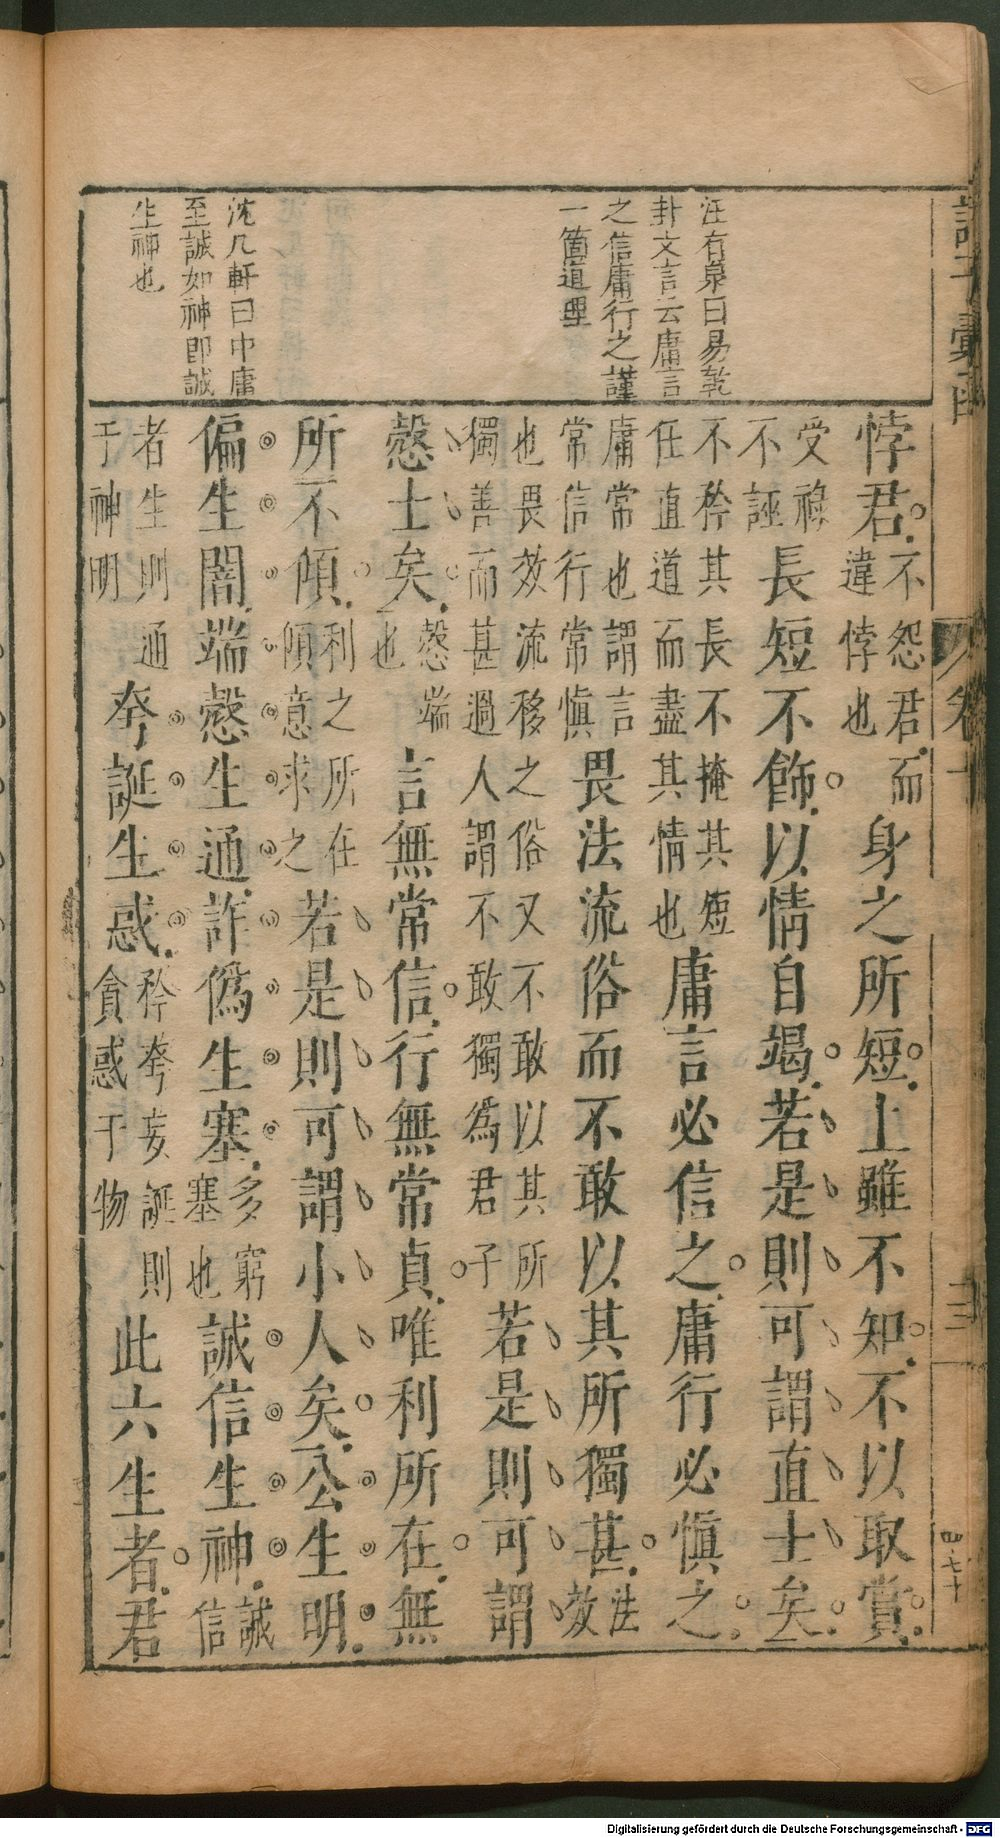 諸子彙函
汪有泉曰易乾
卦文言云庸言
之信庸行之謹
一箇道理
沈几軒曰中庸
至誠如神即誠
生神也
悖君。不怨君而違悖也身之所短。上雖不知。不以取賞。
受祿不誣長短不飾。以情自竭。若是則可謂直士矣。
不矜其長不掩其短任直道而盡其情也庸言必信之。庸行必慎之。
庸常也謂言常信行常慎畏法流俗而不敢以其所獨甚。法效
也畏效流移之俗又不敢以其所獨善而甚過人謂不敢獨為君子若是則可謂
愨士矣。愨端也言無常信。行無常貞。唯利所在。無
所不傾。利之所在傾意求之若是則可謂小人矣。公生明。
偏生闇。端愨生通。詐偽生塞。多窮塞也誠信生神。誠信
者生則通于神明夸誕生惑。矜夸妄誕則貪惑于物此六生者。君
卷十
四·七十
Digitalisierung gefördert durch die Deutsche Forschungsgemeinschaft - DFG